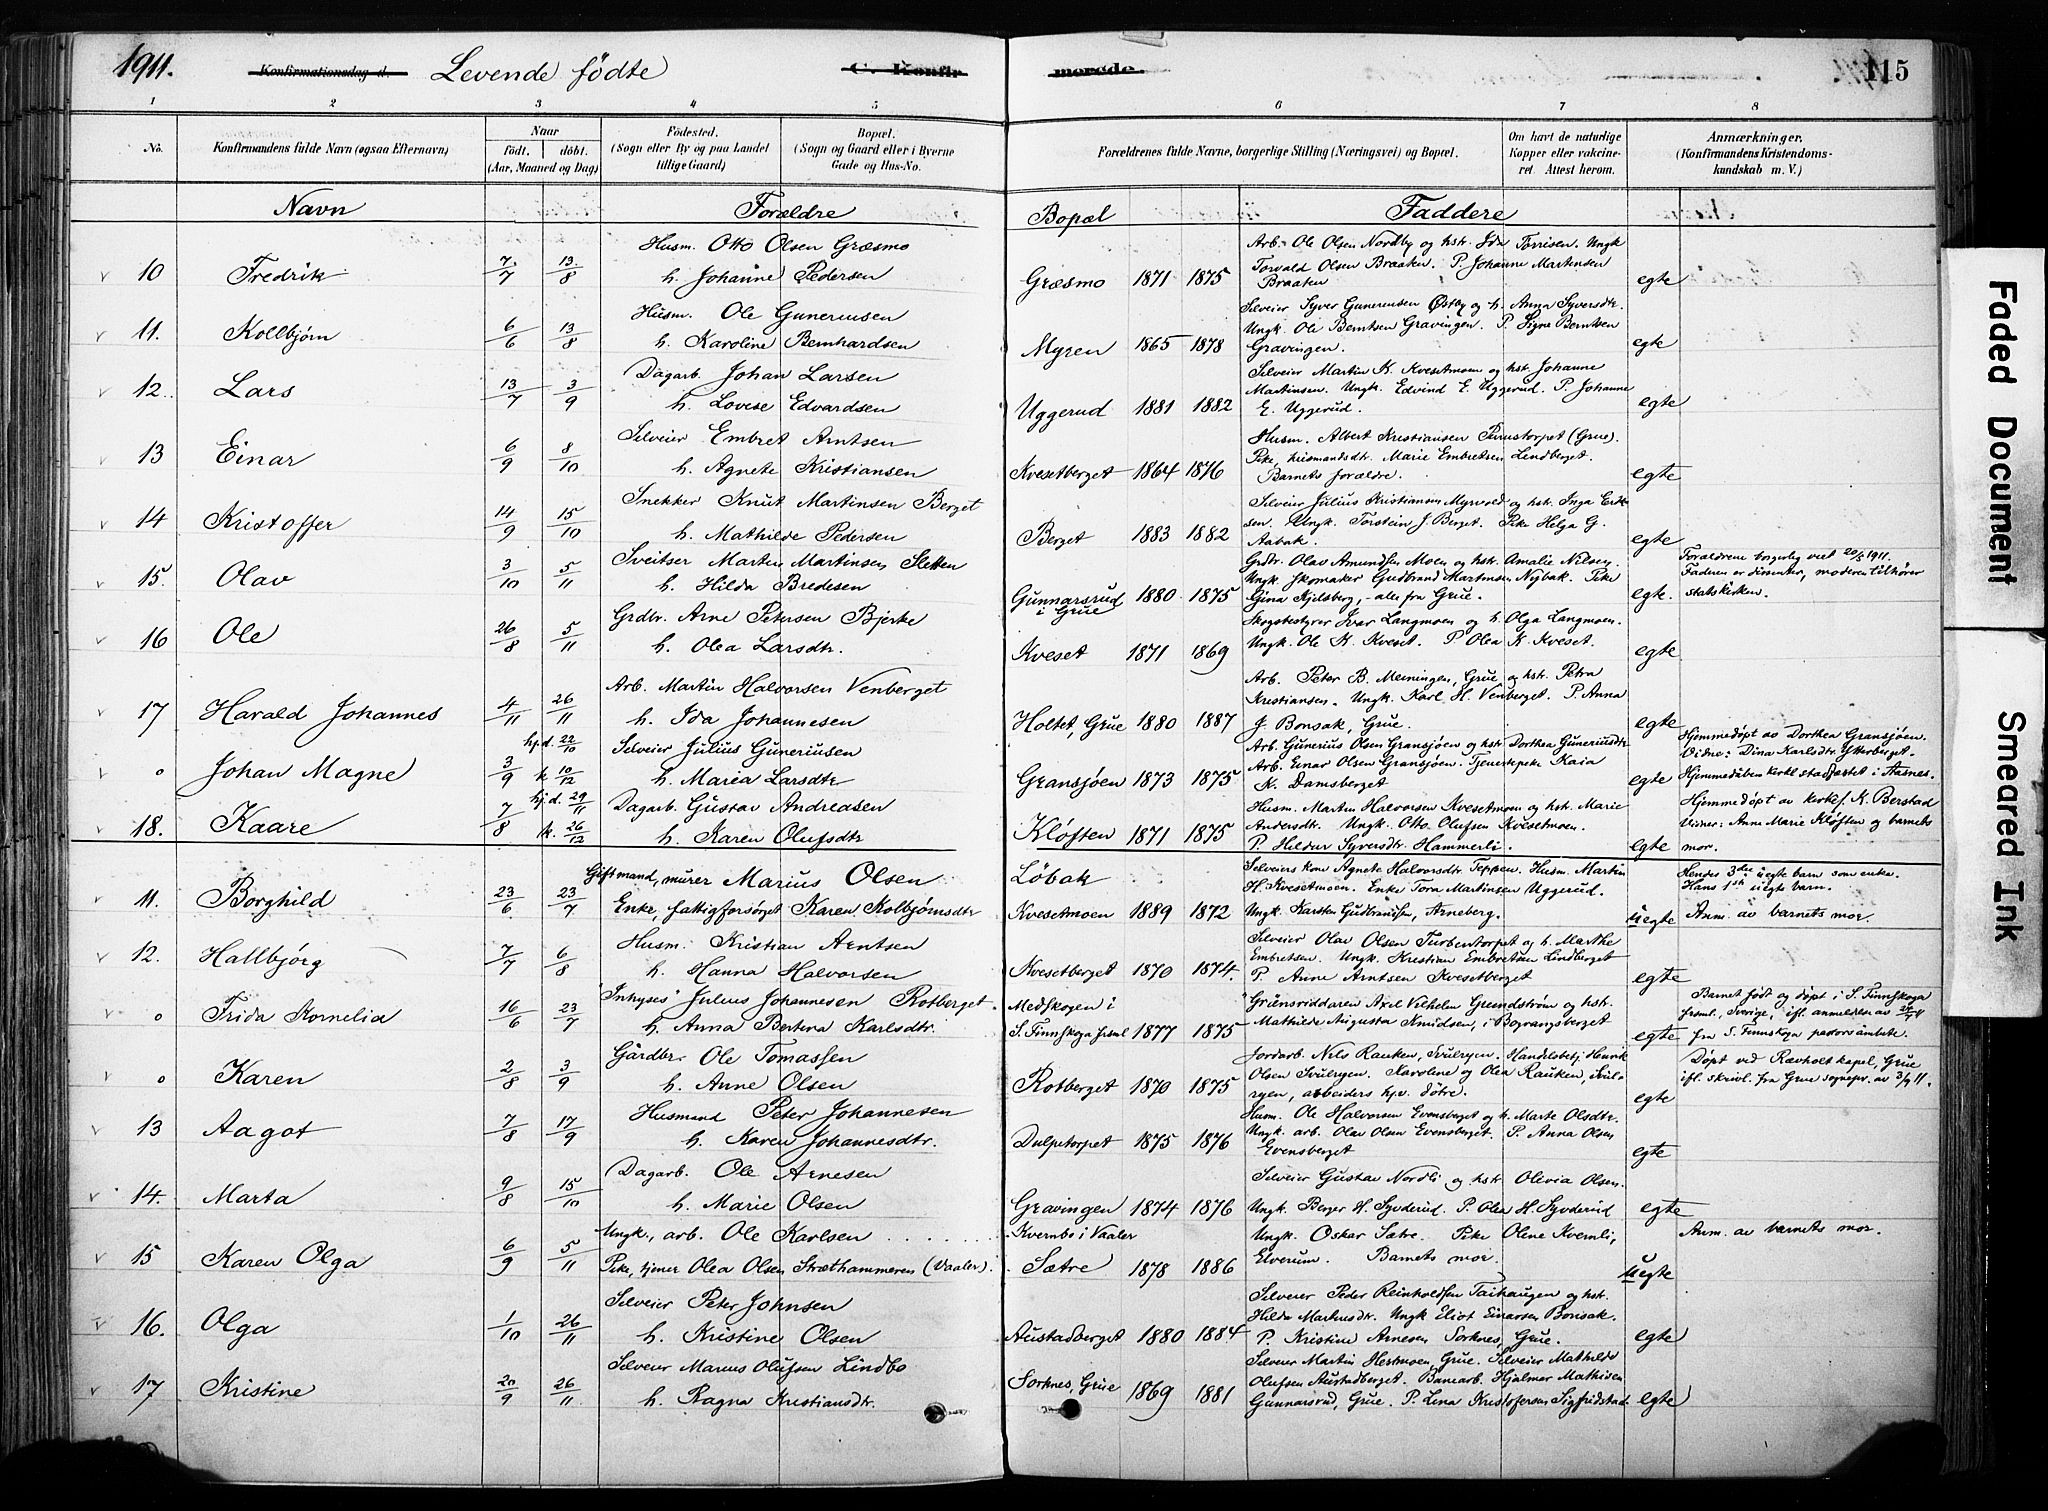 1911.
Konfirmationsdag d.
Levende fødte
C. Konfir
merede
115
1 2 3 4 5 6 7 8
No.
Konfirmandens fulde Navn (ogsaa Efternavn)
Naar
født. døbt.
(Aar, Maaned og Dag)
Fødested.
(Sogn eller By og paa Landet
tillige Gaard)
Bopæl.
(Sogn og Gaard eller i Byerne
Gade og Hus-No.
Forældrenes fulde Navne, borgerlige Stilling (Næringsvei) og Bopæl.
Om havt de naturlige
Kopper eller vakcine-
ret. Attest herom.
Anmærkninger.
(Konfirmandens Kristendoms-
kundskab m. V.)
Navn Forældre Bopæl Faddere
10 Fredrik 7/7 13/8
Husm. Otto Olsen Græsmo
h. Johanne Pedersen
Græsmo 1871 1875
Arb. Ole Olsen Nordby og hstr. Ida Torrisen. Ungk
Torvald Olsen Braaten. P. Johanne Martinsen
Braaten
egte
11. Kollbjørn 6/6 13/8
Husm. Ole Guneriusen
h. Karoline Bernhardsen
Myren 1865 1878
Selveier Syver Guneriusen Østby og h. Anna Syversdtr.
Ungk. Ole Berntsen Gravingen. P. Signe Berntsen
Gravingen.
egte
12. Lars 13/7 3/9
Dagarb. Johan Larsen
h. Lovise Edvardsen
Uggerud 1881 1882
Selveier Martin K. Kvesetmoen og hstr. Johanne
Martinsen. Ungk. Edvind E. Uggerud. P. Johanne
E. Uggerud.
egte
13 Einar 6/9 8/10
Selveier Embret Arntsen
h. Agnete Kristiansen
Kvesetberget 1864 1876
Husm. Albert Kristiansen (Grue).
Pike, husmandsdt. Marie Embretsen Lindberget.
Barnets forældre.
egte
14 Kristoffer 14/9 15/10
Snekker Knut Martinsen Berget
h. Mathilde Pedersen
Berget 1883 1882
Selveier Julius Kristiansen Myrvold og hstr. Inga Erik-
sen. Ungk. Torstein J. Berget. Pike Helga G.
Aabak.
egte
15. Olav 3/10 5/11
Sveitser Martin Martinsen Sletten
h. Hilda Bredesen
Gunnarsrud
i Grue
1880 1875
Grdr. Olav Amundsen Moen og hstr. Amalie Nilsen.
Ungk. skomaker Gudbrand Martinsen Nybak. Pike
Gina Kjelsberg, - alle fra Grue.
egte.
Forældrene borgerlig viet 20/5 1911.
Faderen er dissenter, moderen tilhører
statskirken.
16 Ole 26/8 5/11
Grdbr. Arne Petersen Bjerke
h. Olea Larsdtr.
Kveset 1871 1869
Skogbestyrer Ivar Langmoen og h. Olga Langmoen.
Ungk. Ole K. Kveset. P. Olea K. Kveset.
egte
17 Harald Johannes 4/11 26/11
Arb. Martin Halvorsen Venberget
h. Ida Johannesen
Holtet, Grue 1880 1887
Arb. Peter B. Meiningen, Grue og hstr. Petra
Kristiansen. Ungk. Karl H. Venberget. P. Anna
J. Bonsak, Grue.
egte
o Johan Magne 3/9 hj.d. 22/10 k. 10/12
Selveier Julius Guneriusen
h. Maria Larsdtr
Gransjøen 1873 1875
Arb. Gunerius Olsen Gransjøen og hstr. Dorthea Guneriusdtr
Arb. Einar Olsen Gransjøen. Tjenestepike Kaia
K. Damsberget
egte
Hjemmedøpt av Dorthea Gransjøen.
Vidne: Dina Karlsdtr. Ytterberget.
Hjemmedåben kirkl. stadfæstet i Aasnes.
18. Kaare 7/8 hj.d. 29/11 k. 26/12
Dagarb. Gustav Andreasen
h. Karen Olufsdtr
Kløften 1871 1875
Husm. Martin Halvorsen Kvesetmoen og hstr. Marie
Andersdtr. Ungk. Otto Olufsen Kvesetmoen.
P. Hildur Syversdtr. Hammerli.
egte
Hjemmedøpt av kirkes. K. Berstad
Vidner: Anne Marie Kløften og barnets
mor.
11. Borghild 23/6 23/7
Gift mand, murer Marius Olsen
Enke, fattigforsørget Karen Kolbjørnsdtr
Løbak
Kvesetmoen 1889 1872
Selveiers kone Agnete Halvorsdtr Teppen. Husm. Martin
H. Kvesetmoen. Enke Tora Martinsen Uggerud.
Ungk. Karsten Gudbrandsen, Arneberg.
uegte
Hendes 3die uegte barn som enke.
Hans 1ste uegte barn.
Anm. av barnets mor.
12. Hallbjørg 7/7 6/8
Husm. Kristian Arntsen
h. Hanna Halvorsen
Kvesetberget 1870 1874.
Selveier Olav Olsen Turbentorpet og h. Marthe
Embretsen. Ungk. Kristian Embretsen Lindberget
P. Anne Arntsen Kvesetberget
egte
o Frida Kornelia 16/6 23/7
"Inhyses" Julius Johannesen Rotberget.
h. Anna Bertina Karlsdtr.
Medskogen i
S. Finnskoga frsml 1877 1875
"Gränsriddaren Axel Vilhelm Grundstrøm og hstr.
Mathilde Augusta Knudsen, i Bograngsberget
egte
Barnet født og døpt i S. Finnskoga
frsml., Sverige, ifl. anmeldelse av
fra S. Finnskoga pastorsämbete.
o Karen 2/8 3/9
Gårdbr. Ole Tomassen
h. Anne Olsen
Rotberget 1870 1875
Jordarb. Nils Rauken, Svulryen. Handelsbetj. Henrik
Olsen Svulryen. Karoline og Olea Rauken, Svul-
ryen, arbeiders hjv. døtre.
egte
Døpt ved Rævholt kapel, Grue
ifl. skrivl. fra Grue sognepr. av 3/9 11.
13 Aagot 7/8 17/9
Husmand Peter Johannesen
h. Karen Johannesdtr.
Dulpetorpet 1875 1876
Husm. Ole Halvorsen Evensberget og h. Marte Olsdtr.
Ungk. arb. Olav Olsen Evensberget. P. Anna Olsen
Evensberget
egte
14. Marta 9/8 15/10
Dagarb. Ole Arnesen
h. Marie Olsen
Gravingen 1874 1876
Selveier Gustav Nordli og hstr Olivia Olsen.
Ungk. Berger H. Syvderud. P. Olea H. Syvderud
egte
15 Karen Olga 6/9 5/11
Ungk., arb. Ole Karlsen
Pike, tjener Olea Olsen Stræthammeren (Vaaler).
Kvernbo i Vaaler
Sætre 1878 1886
Ungk. Oskar Sætre. Pike Olene Kvernli,
Elverum. Barnets mor.
uegte
Anm. av barnets mor.
16. Olga 1/10 26/11
Selveier Peter Johnsen
h. Kristine Olsen
Austadberget 1880 1884
Selveier Peder Reinholdsen Taihaugen og hstr.
Hilda Martinsdtr. Ungk Eliot Einarsen Bonsak.
P. Kristine Arnesen Sorknes, Grue.
egte
17 Kristine 20/9 26/11
Selveier Marius Olufsen Lindbo
h. Ragna Kristiansdtr.
Sorknes, Grue 1869 1881
Selveier Martin Hestmoen, Grue. Selveier Mathilde
Olufsen Austadberget. Banearb. Hjalmar Mathisen
Gunnarsrud, Grue. P. Lina Kristofersen Sigfridstad.
egte
Faded Document
Smeared Ink